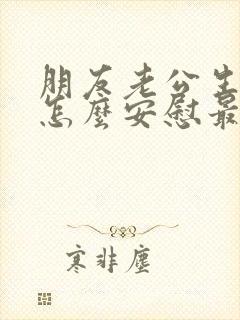 朋友老公生
怎麼安慰最
寒非塵